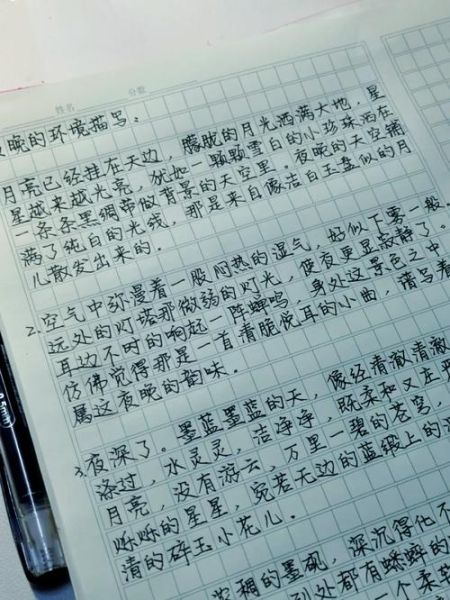 姓名 分数
夜晚的环境描写:
月亮已经挂在天边,朦胧的月光洒满大地,星
星越来越光亮,犹如一颗颗雪白的小珍珠洒在
一条条黑绸带做背景的天空里。夜晚的天空铺
满了纯白的光线,那是来自像洁白玉盘似的月
儿散发出来的。
2.空气中弥漫着一股闷热的湿气,好似下雾一般。
远处的灯塔那微弱的灯光,使夜更显寂静了。
耳边不时的响起一阵蝉鸣,身处这景色之中
仿佛觉得那是一首清脆悦耳的小曲,谱写着
属这夜晚的韵味。
3.夜深了。墨蓝墨蓝的天,像经清澈清澈
涤过,水灵灵,洁净净,既柔和又庄
月亮,没有游云,万里一碧的苍穹
烁烁的星星,宛若无边的蓝缎上的
清的碎玉小花儿。
稠的墨砚,深沉得化不
到处都有蟋蟀的
一个柔
0.5mm